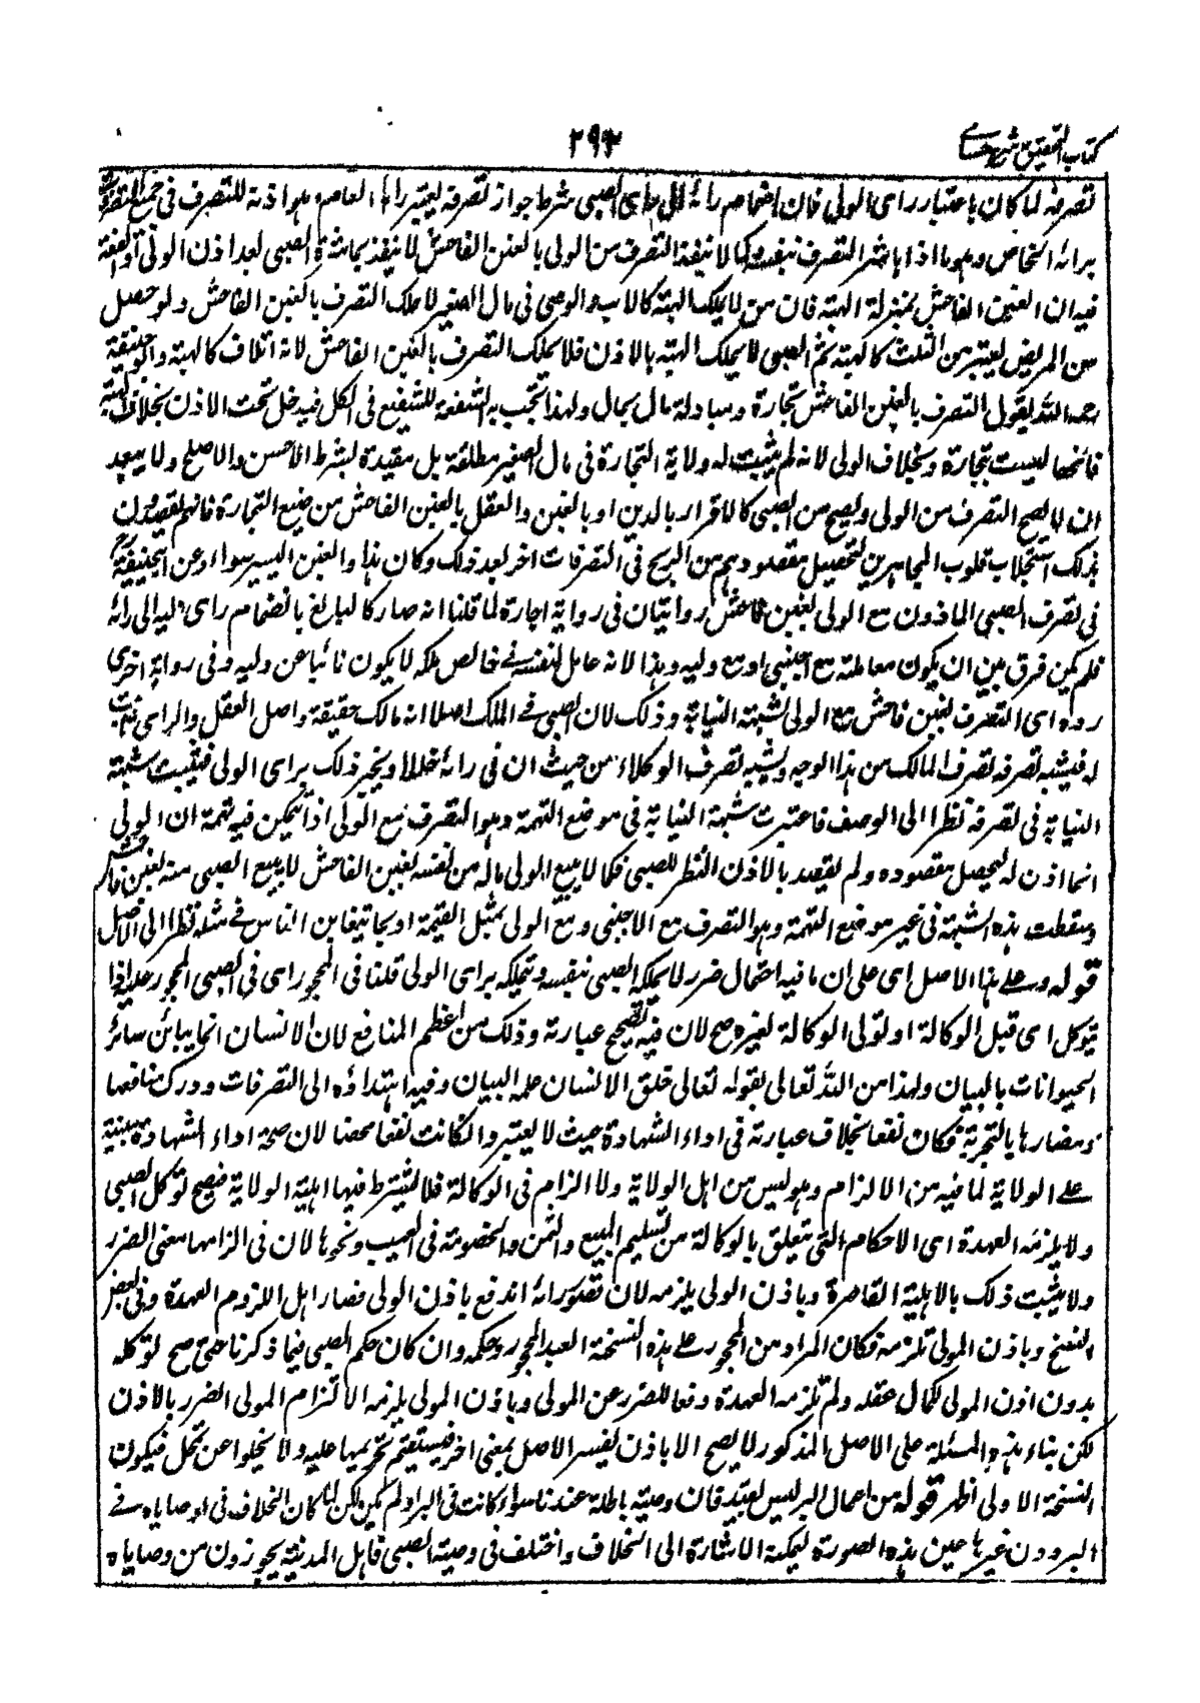 كتاب التحقيق شرح حسامى
٢٩٣
تصرفه لما كان باعتبار راى الولى فان انضمام رائه الى راى الصبى شرط جواز تصرفه يعتبر رائه العام وهو اذنه للتصرف فى جميع التصرفات
برائه الخاص وهو ما اذا باشر التصرف بنفسه وكما لا ينفذ التصرف من الولى بالغبن الفاحش لا ينفذ بمباشرة الصبى بعد اذن الولى
فيه ان الغبن الفاحش بمنزلة الهبة فان من لا يملك الهبة كالاب والوصى فى مال الصغير لا يملك التصرف بالغبن الفاحش ولو حصل
من المريض يعتبر من الثلث كالهبة ثم الصبى لا يملك الهبة بالاذن فلا يملك التصرف بالغبن الفاحش لانه اتلاف كالهبة وابو حنيفة
رحمه الله يقول التصرف بالغبن الفاحش تجارة ومبادلة مال بمال ولهذا تجب به الشفعة للشفيع فى الكل فيدخل تحت الاذن بخلاف الهبة
فانها ليست بتجارة وبخلاف الولى لانه لم يثبت له ولاية التجارة فى مال الصغير مطلقة بل مقيدة بشرط الاحسن والاصلح ولا يبعد
ان لا يصح التصرف من الولى ويصح من الصبى كالاقرار بالدين او بالغبن والعقل بالغبن الفاحش من صنع التجارة فانهم يقصدون
بذلك استجلاب قلوب المجاهرين لتحصيل مقصودهم من الربح فى التصرفات اخر بعد ذلك وكان هذا والغبن اليسير سواء وعن ابى حنيفة
فى تصرف الصبى الماذون مع الولى بغبن فاحش روايتان فى رواية اجازه لما قلنا انه صار كالبالغ بانضمام راى وليه الى رائه
فلم يكن فرق بين ان يكون معاملته مع اجنبى او مع وليه وهذا لانه عامل لنفسه فى خالص ملكه لا يكون نائبا عن وليه وفى رواية اخرى
رده اى التصرف بغبن فاحش مع الولى لشبهة النيابة وذلك لان الصبى فى الملك اصل لانه مالك حقيقة واصل العقل والراى ثابت
له فيشبه تصرفه تصرف الملاك من هذا الوجه ويشبه تصرف الوكلاء من حيث ان فى رائه خللا ويجبر ذلك براى الولى فتثبت شبهة
النيابة فى تصرفه نظرا الى الوصف فاعتبرت شبهة النيابة فى موضع التهمة وهو التصرف مع الولى اذ يتمكن فيه تهمة ان الولى
انما اذن له ليحصل مقصوده ولم يقصد بالاذن النظر للصبى فكما لا يبيع الولى ماله من نفسه بغبن الفاحش لا يبيع الصبى منه بغبن فاحش
وسقطت هذه الشبهة فى غير موضع التهمة وهو التصرف مع الاجنبى ومع الولى بمثل القيمة او بما يتغابن الناس فى مثله نظرا الى الاصل
قوله وعلى هذا الاصل اى على ان ما فيه احتمال ضرر لا يملكه الصبى بنفسه ويملكه براى الولى قلنا فى المحجور اى فى الصبى المحجور عليه اذا
توكل اى قبل الوكالة او تولى الوكالة لغيره صح لان فيه تصحيح عبارته وذلك من اعظم المنافع لان الانسان انما يباين سائر
الحيوانات بالبيان ولهذا من الله تعالى بقوله تعالى خلق الانسان علمه البيان وفيه اهتداؤه الى التصرفات ودرك منافعها
ومضارها بالتجربة فكان نفعا بخلاف عبارته فى اداء الشهادة حيث لا يعتبر وان كانت نفعا محضا لان صحة اداء الشهادة مبنية
على الولاية لما فيه من الالزام وهو ليس من اهل الولاية ولا الزام فى الوكالة فلا يشترط فيها اهلية الولاية فيصح توكل الصبى
ولا يلزمه العهدة اى الاحكام التى يتعلق بالوكالة من تسليم المبيع والثمن والخصومة فى العيب ونحوها لان فى الزامها معنى الضرر
ولا يثبت ذلك بالاهلية القاصرة وباذن الولى يلزمه لان قصور رائه اندفع باذن الولى فصار اهلا للزوم العهدة وفى بعض
النسخ وباذن المولى تلزمه فكان المراد من المحجور على هذه النسخة العبد المحجور وحكمه وان كان حكم الصبى فيما ذكرنا حتى صح توكله
بدون اذن المولى لكمال عقله ولم تلزمه العهدة دفعا للضرر عن المولى وباذن المولى يلزمه لالتزام المولى الضرر بالاذن
لكن بناء هذه المسئلة على الاصل المذكور لا يصح الا باذن يفسر الاصل بمعنى اخر فيستقيم تخريجها عليه ولا يخلوا عن تمحل فيكون
النسخة الاولى اظهر قوله من اعمال البر ليس بقيد فان وصيته باطلة عندنا سواء كانت فى البر او لم تكن لكن لما كان الخلاف فى اوصاياه فى
البر دون غيرها عين هذه الصورة ليمكنه الاشارة الى الخلاف واختلف فى وصية الصبى فاهل المدينة يجوزون من وصاياه